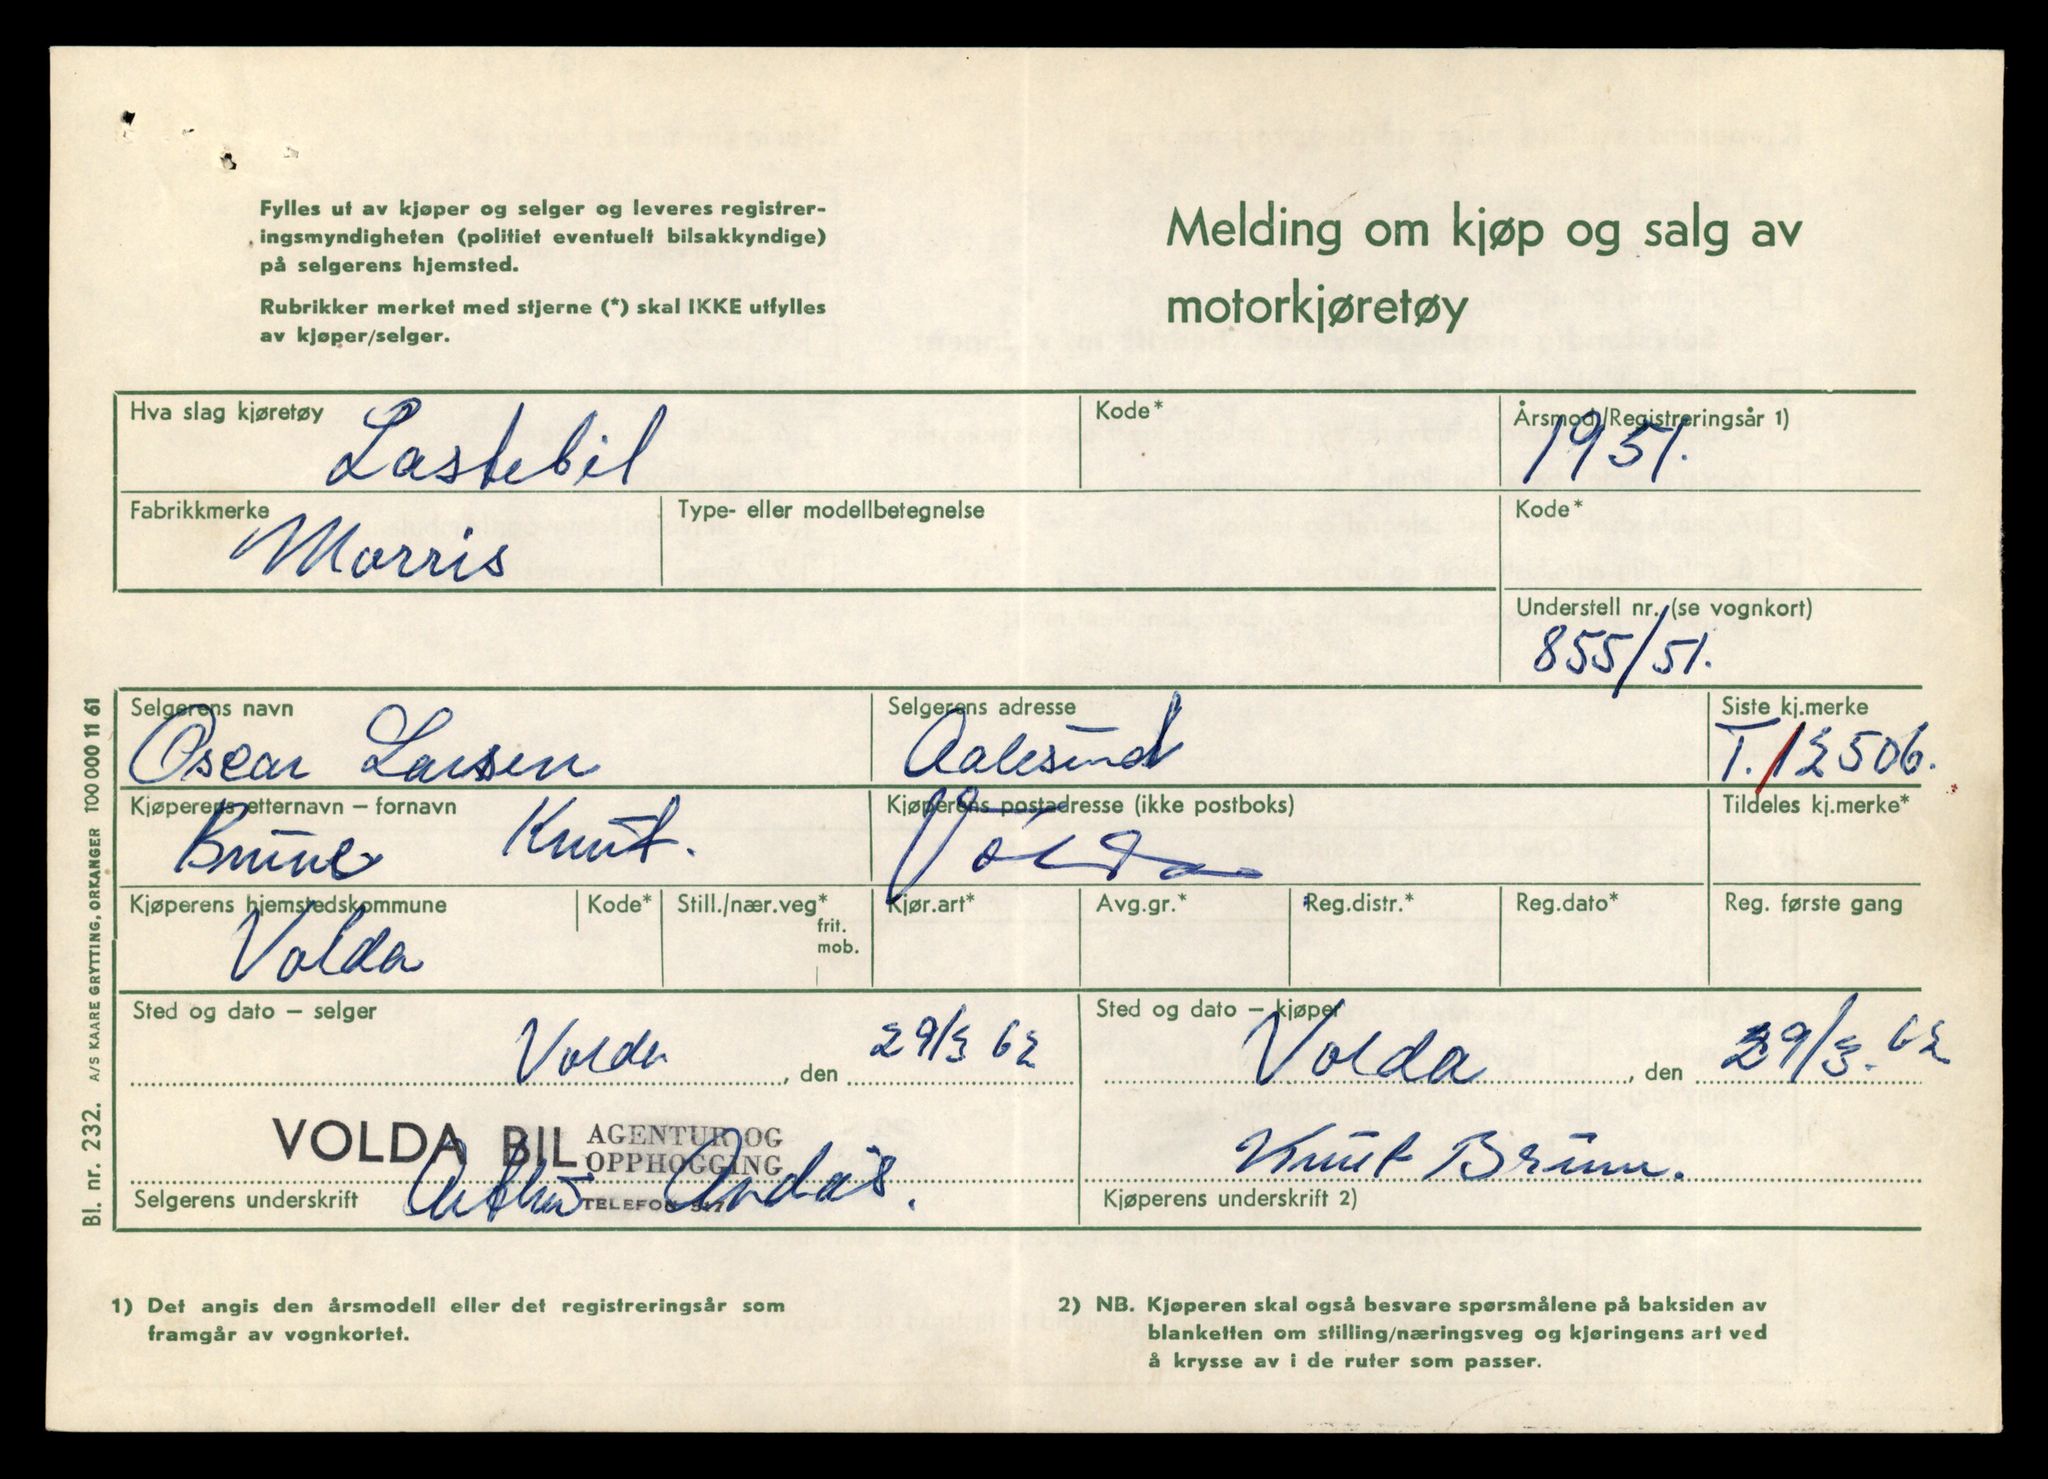 Fylles ut av kjøper og selger og leveres registrer-
ingsmyndigheten (politiet eventuelt bilsakkyndige)
på selgerens hjemsted.
Rubrikker merket med stjerne (*) skal IKKE utfylles
av kjøper/selger.
Melding om kjøp og salg av
motorkjøretøy
Hva slag kjøretøy Lastebil
Kode*
Årsmod./Registreringsår 1) 1951.
Fabrikkmerke Morris
Type- eller modellbetegnelse
Kode*
Understell nr. (se vognkort)
855/51.
Selgerens navn
Oscar Larsen
Selgerens adresse
Aalesund
Siste kj.merke
T.12506.
Kjøperens etternavn – fornavn
Brune Knut.
Kjøperens postadresse (ikke postboks)
Volda
Tildeles kj.merke*
Kjøperens hjemstedskommune
Volda
Kode*
Still./nær.veg*
frit.
mob.
Kjør.art*
Avg.gr.*
Reg.distr.*
Reg.dato*
Reg. første gang
Sted og dato – selger
Volda, den 29/3 62
Sted og dato – kjøper
Volda, den 29/3. 62
VOLDA BIL AGENTUR OG
OPPHOGGING
TELEFON
Selgerens underskrift
Knut Brune.
Kjøperens underskrift 2)
1) Det angis den årsmodell eller det registreringsår som
framgår av vognkortet.
2) NB. Kjøperen skal også besvare spørsmålene på baksiden av
blanketten om stilling/næringsveg og kjøringens art ved
å krysse av i de ruter som passer.
Bl. nr. 232. A/S KAARE GRYTTING, ORKANGER 100 000 11 61